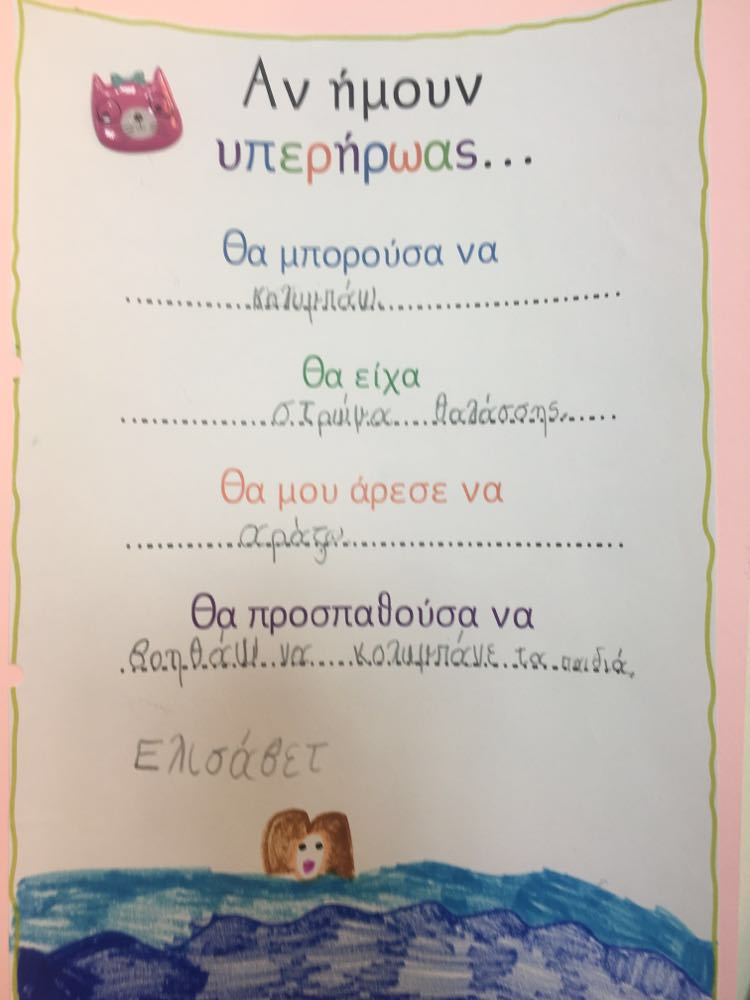 Αν ήμουν
υπερήρωας...
Θα μπορούσα να
κολυμπάω.
Θα είχα
στρώμα θαλάσσης.
Θα μου άρεσε να
αράζω
Θα προσπαθούσα να
βοηθάω να κολυμπάνε τα παιδιά.
Ελισάβετ